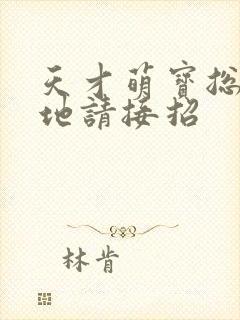 天才萌寶總
地請接招
林肯